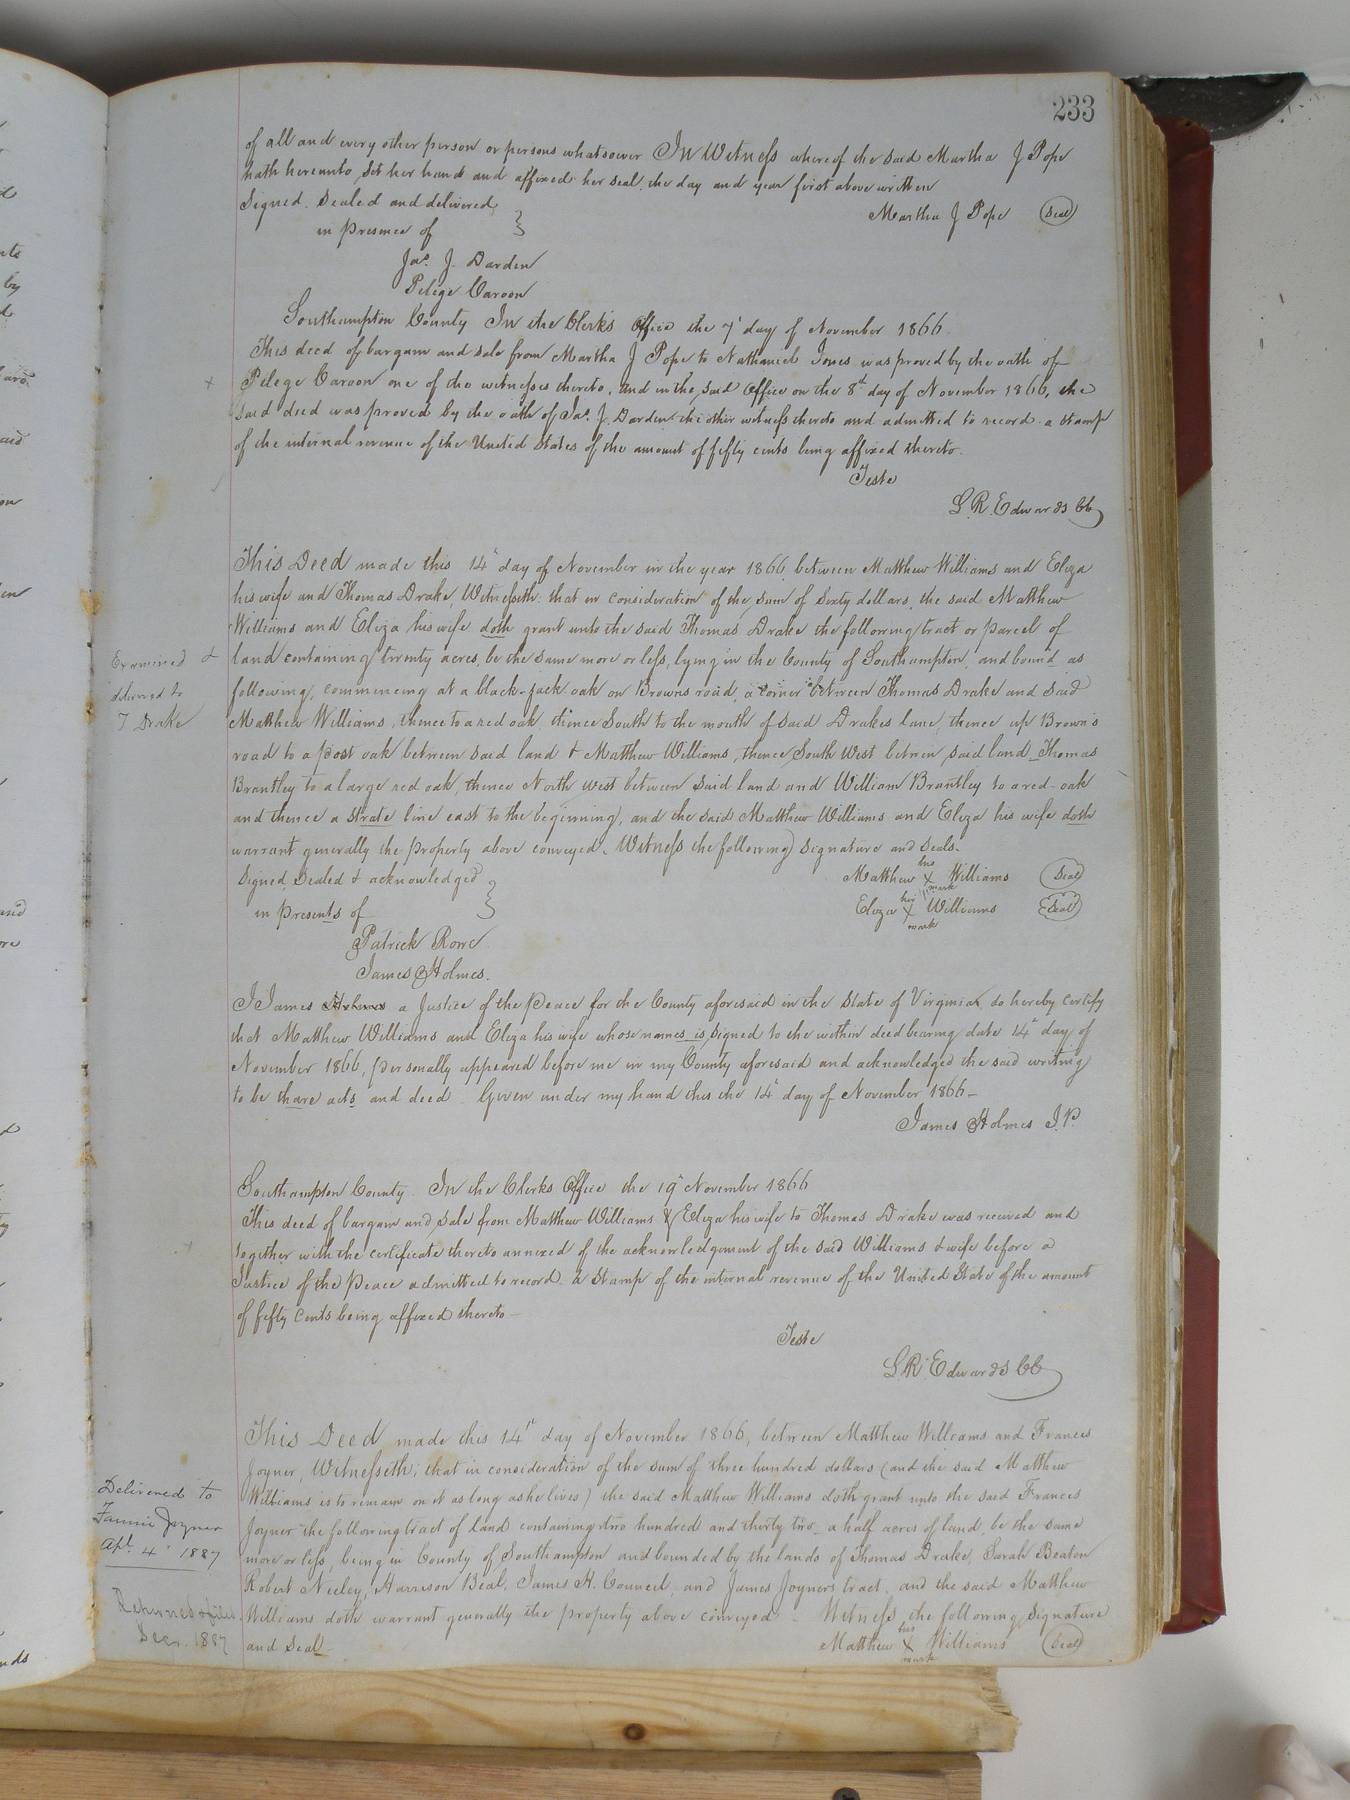 233
of all and every other person or persons whatsoever In Witness whereof the said Martha J Pope
hath hereunto set her hand and affixed her seal the day and year first above written
Signed Sealed and delivered
Martha J Pope Seal
in presence of
Jas. J. Darden
Pelege Caroon
Southampton County In the Clerk's Office the 7" day of November 1866
This deed of bargain and sale from Martha J Pope to Nathaniel Jones was proved by the oath of
Pelege Caroon one of the witnesses thereto, and in the said Office on the 8th day of November 1866, the
said deed was proved by the oath of Jas. J. Darden the other witness thereto and admitted to record a Stamp
of the internal revenue of the United States of the amount of fifty cents being affixed thereto.
Teste
L. R. Edwards CC
This Deed made this 14" day of November in the year 1866, between Matthew Williams and Eliza
his wife and Thomas Drake, Witnesseth that in consideration of the sum of Sixty dollars, the said Matthew
Williams and Eliza his wife doth grant unto the said Thomas Drake the following tract or parcel of
Examined &
land containing twenty acres, be the same more or less, lying in the County of Southampton, and bound as
delivered to
following, commencing at a black-jack oak on Browns road, a corner between Thomas Drake and said
T Drake
Matthew Williams, thence to a red oak, thence South to the mouth of said Drakes lane, thence up Brown's
road to a post oak between said land & Matthew Williams, thence South West between said land Thomas
Brantley to a large red oak, thence North west between said land and William Brantley to a red-oak
and thence a strate line east to the beginning, and the said Matthew Williams and Eliza his wife doth
warrant generally the property above conveyed. Witness the following signature and Seals.
Signed, Sealed & acknowledged
Matthew his X mark Williams Seal
in presents of
Eliza her X mark Williams Seal
Patrick Rowe
James Holmes.
I James Holmes a Justice of the Peace for the County aforesaid in the State of Virginia, do hereby certify
that Matthew Williams and Eliza his wife whose names is signed to the within deed bearing date 14" day of
November 1866, personally appeared before me in my County aforesaid and acknowledged the said writing
to be thare acts and deed. Given under my hand this the 14" day of November 1866-
James Holmes J.P.
Southampton County. In the Clerks Office the 19" November 1866
This deed of bargain and sale from Matthew Williams & Eliza his wife to Thomas Drake was received and
together with the certificate thereto annexed of the acknowledgement of the said Williams & wife before a
Justice of the Peace admitted to record. a Stamp of the internal revenue of the United State of the amount
of fifty cents being affixed thereto-
Teste
L. R. Edwards CC
This Deed made this 14" day of November 1866, between Matthew Williams and Frances
Joyner, Witnesseth, that in consideration of the sum of three hundred dollars (and the said Matthew
Delivered to
Williams is to remain on it as long as he lives) the said Matthew Williams doth grant unto the said Frances
Fannie Joyner
Joyner the following tract of land containing two hundred and thirty two & a half acres of land, be the same
Apl. 4" 1887
more or less, being in County of Southampton and bounded by the lands of Thomas Drake, Sarah Beaton
Robert Neeley, Harrison Beal, James H. Council, and James Joyners tract, and the said Matthew
Returned & filed
Williams doth warrant generally the property above conveyed. Witness the following signature
Decr. 1887
and Seal
Matthew his X mark Williams Seal